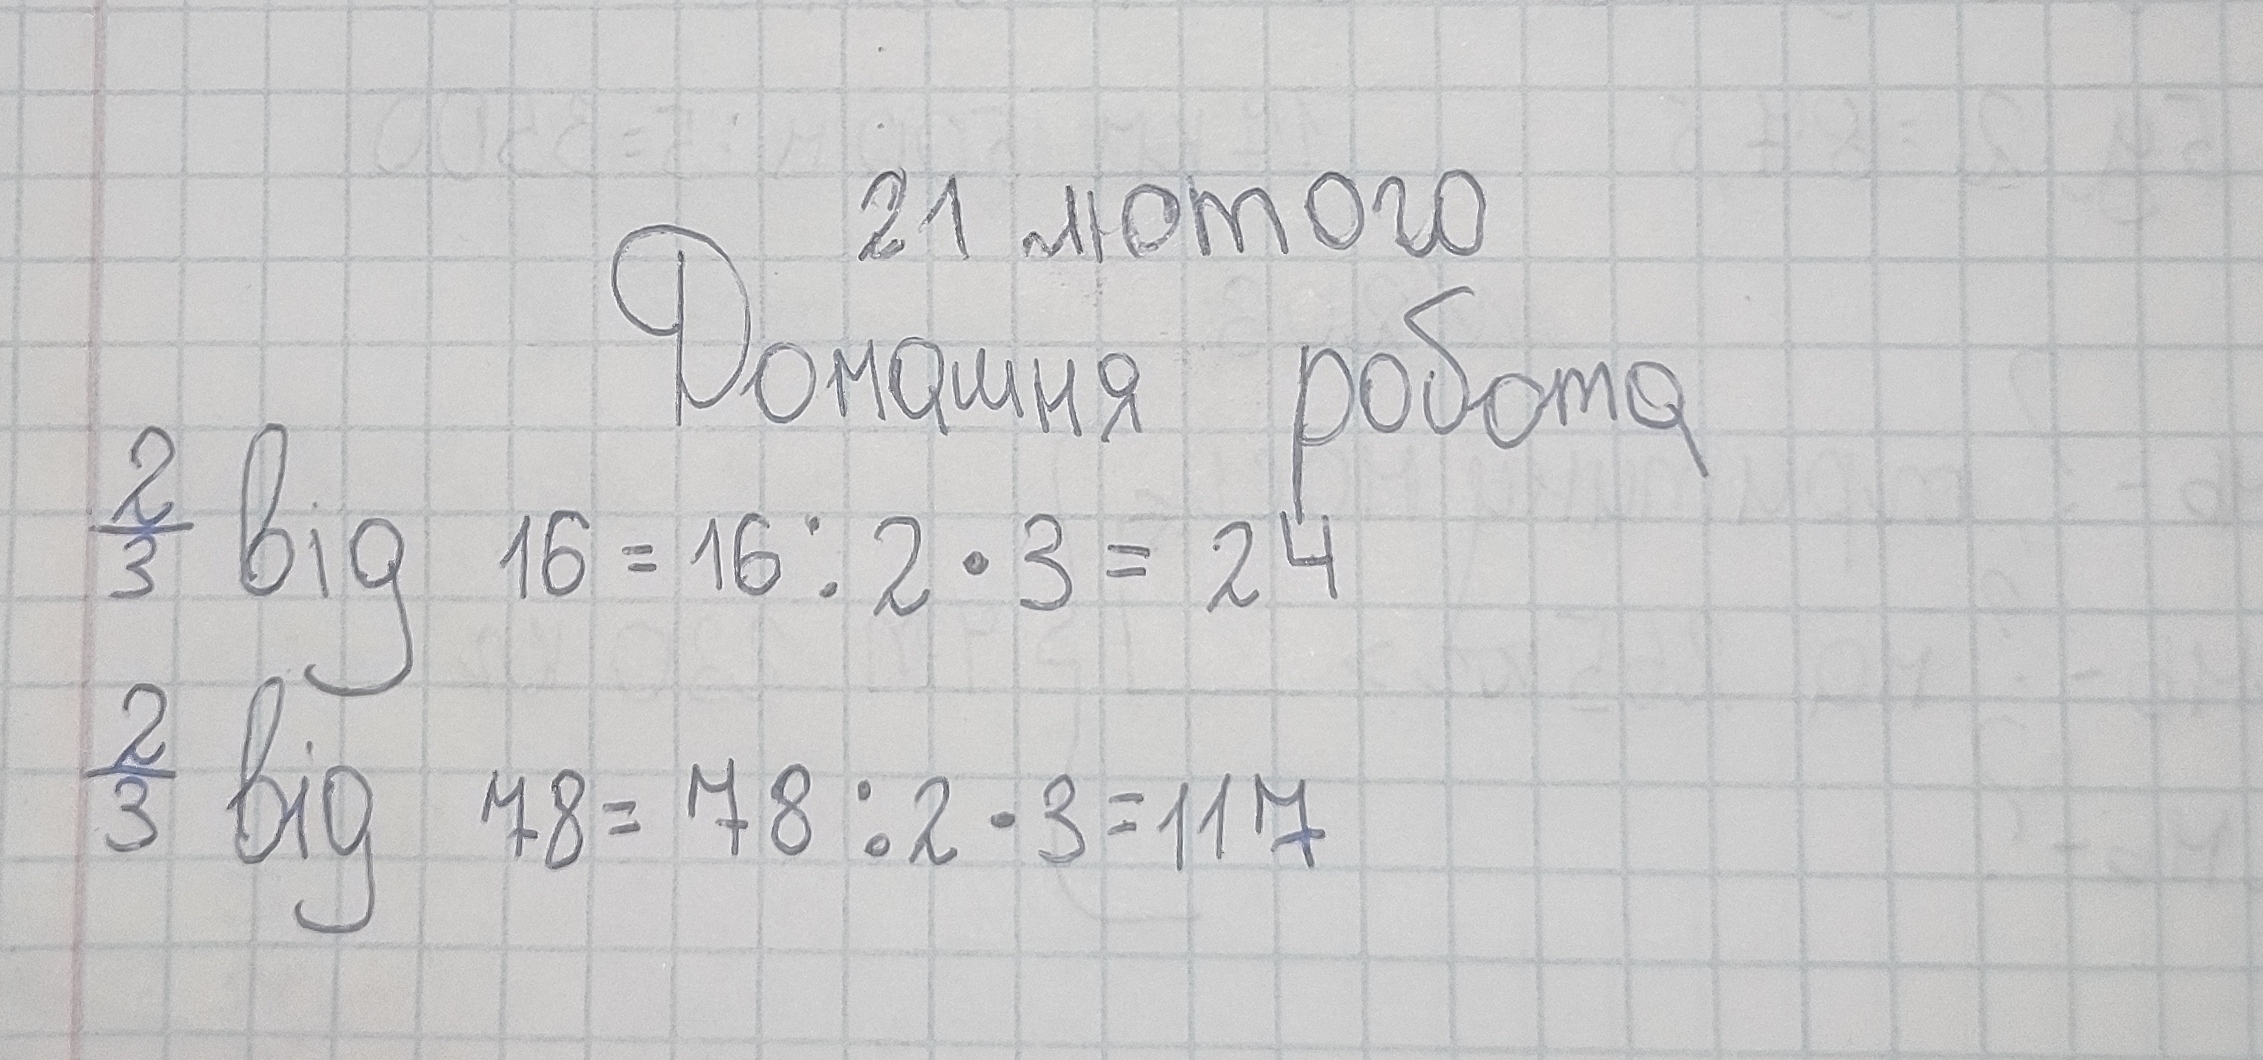 21 лютого
Домашня робота
2/3 від 16 = 16 : 2 · 3 = 24
2/3 від 78 = 78 : 2 · 3 = 117